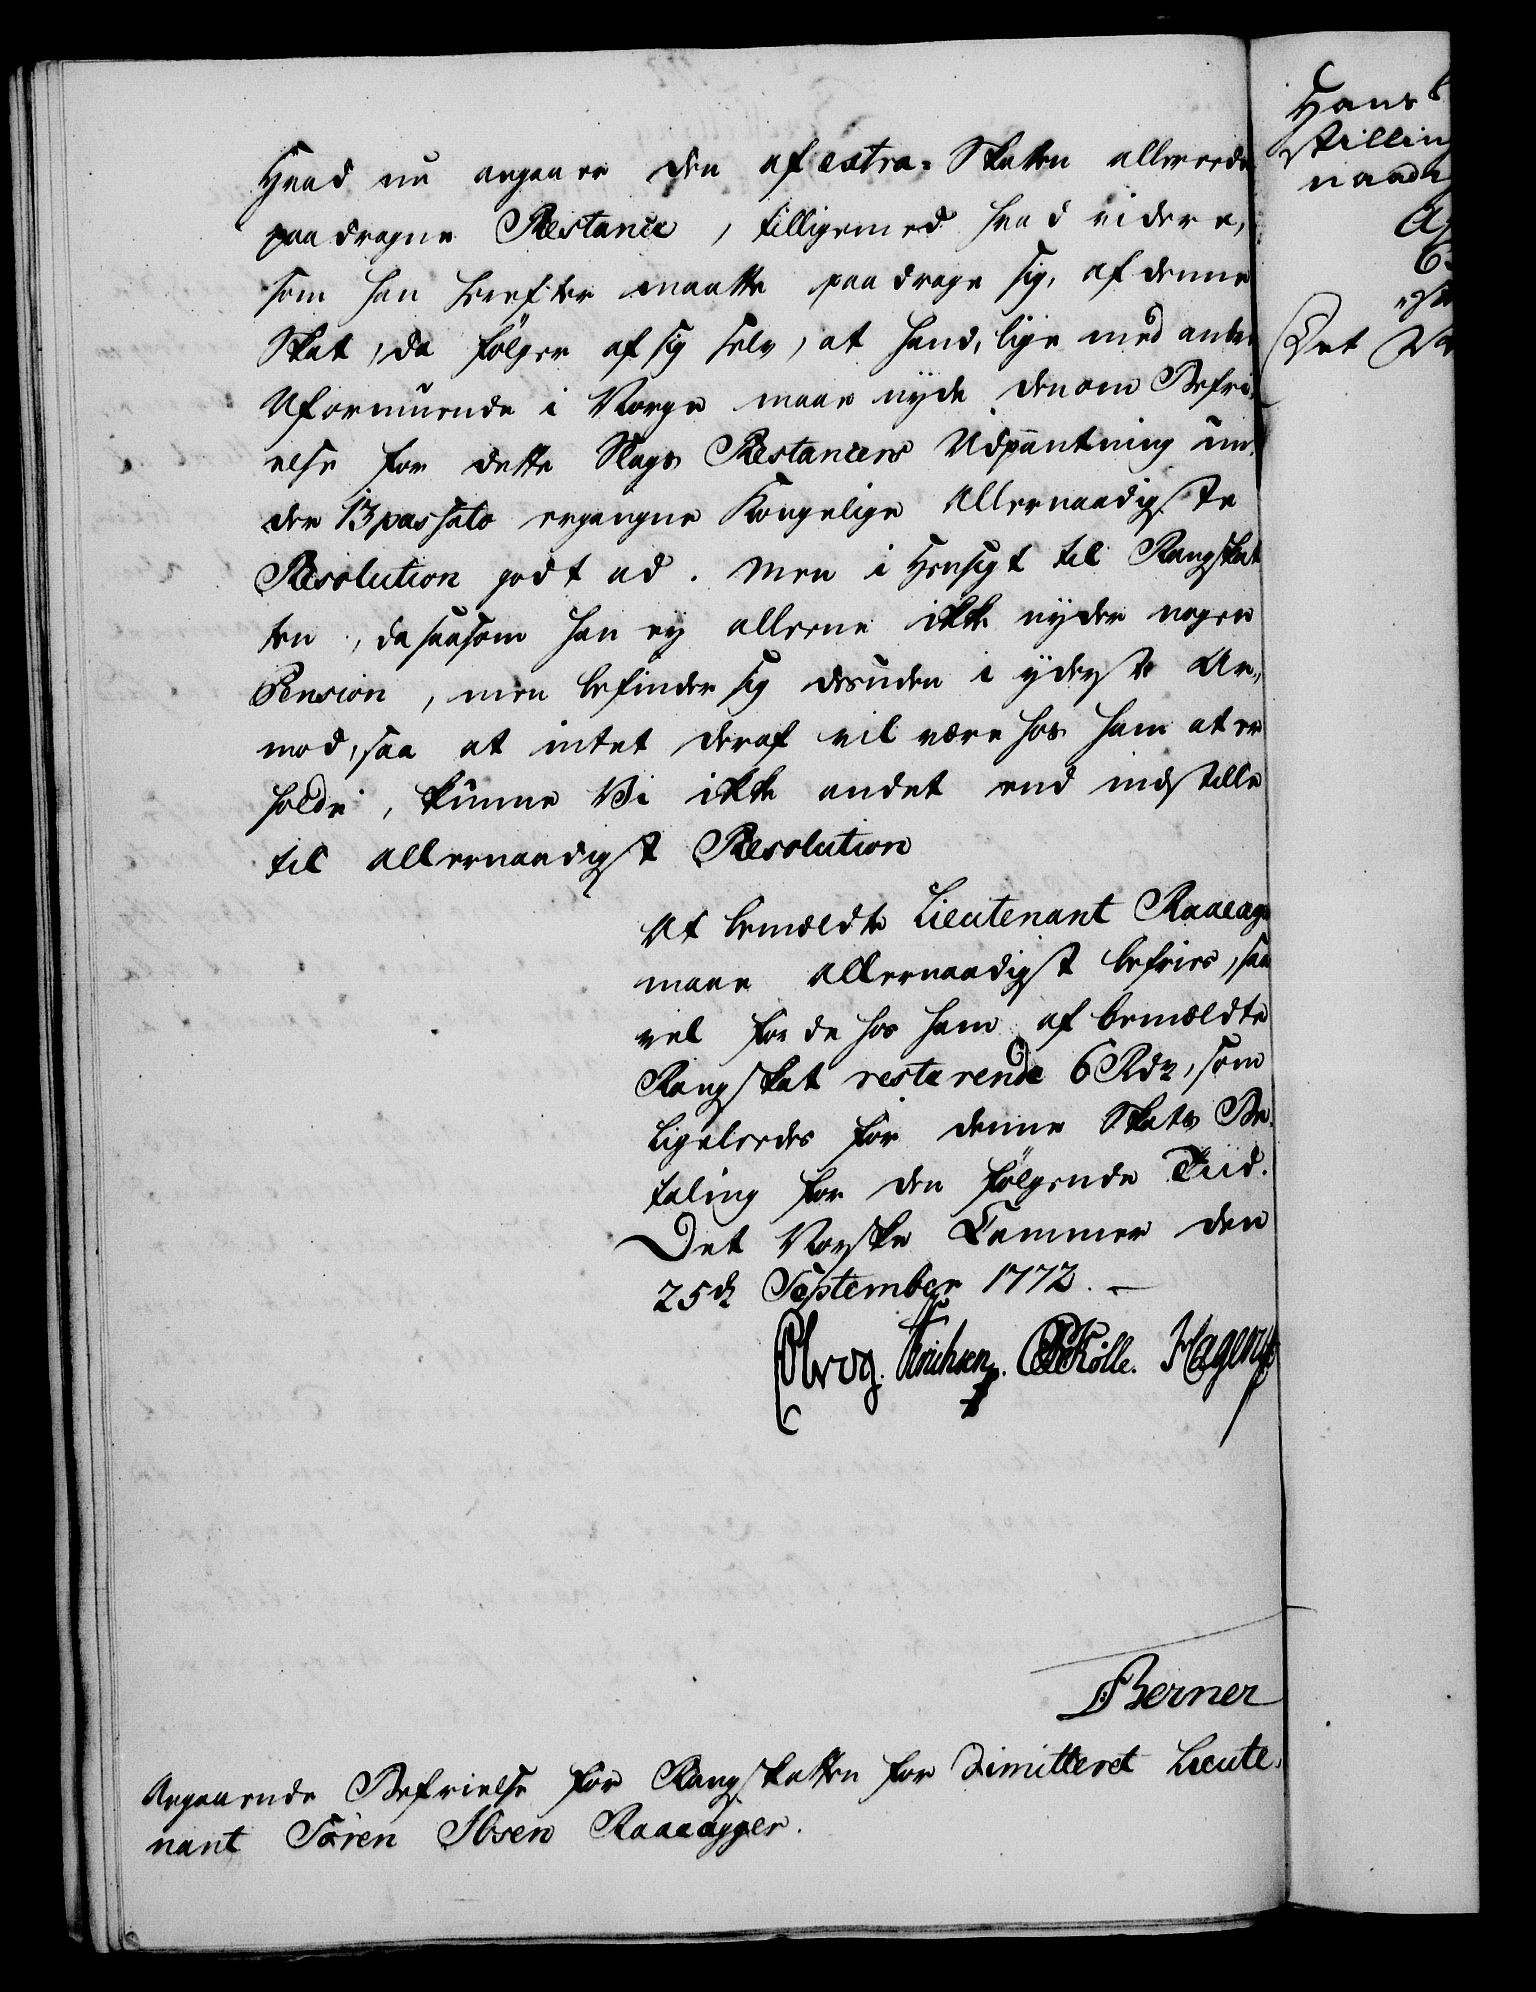 Hvad nu angaaer den af extra-Skatten allereede
paadragne Restance, tilligemed hvad videre,
som han herefter maatte paadrage sig, af denne
Skat, da følger af sig selv, at hand, lige med andre
Uformuende i Norge maae nyde den om Befri-
else for dette Slags Restancers Udpantning un-
der 13 passato ergangne Kongelige Allernaadigste
Resolution godt ad. Men i Hensigt til Rangskat
ten, da saasom han ey alleene ikke nyder nogen
Pension, men befinder sig desuden i yderste Ar-
mod, saa at intet deraf vil være hos ham at er
holde, kunne Vi ikke andet end indstille
til allernaadigst Resolution
At bemældte Lieutenant Raaeag
maae allernaadigst befries, saa
vel for de hos ham af bemældte
Rangskat resterende 6 Rdr, som
ligeleedes for denne Skats Be-
taling for den følgende Tiid.
Det Norske Cammer den
25de September 1772.
Erichsen. Kølle. Hagerup
Berner
Angaaende Befrielse for Rangskatten for dimitteret Lieute-
nant Søren Ibsen Raaeagger.
Hans
stilling
naadig
Det